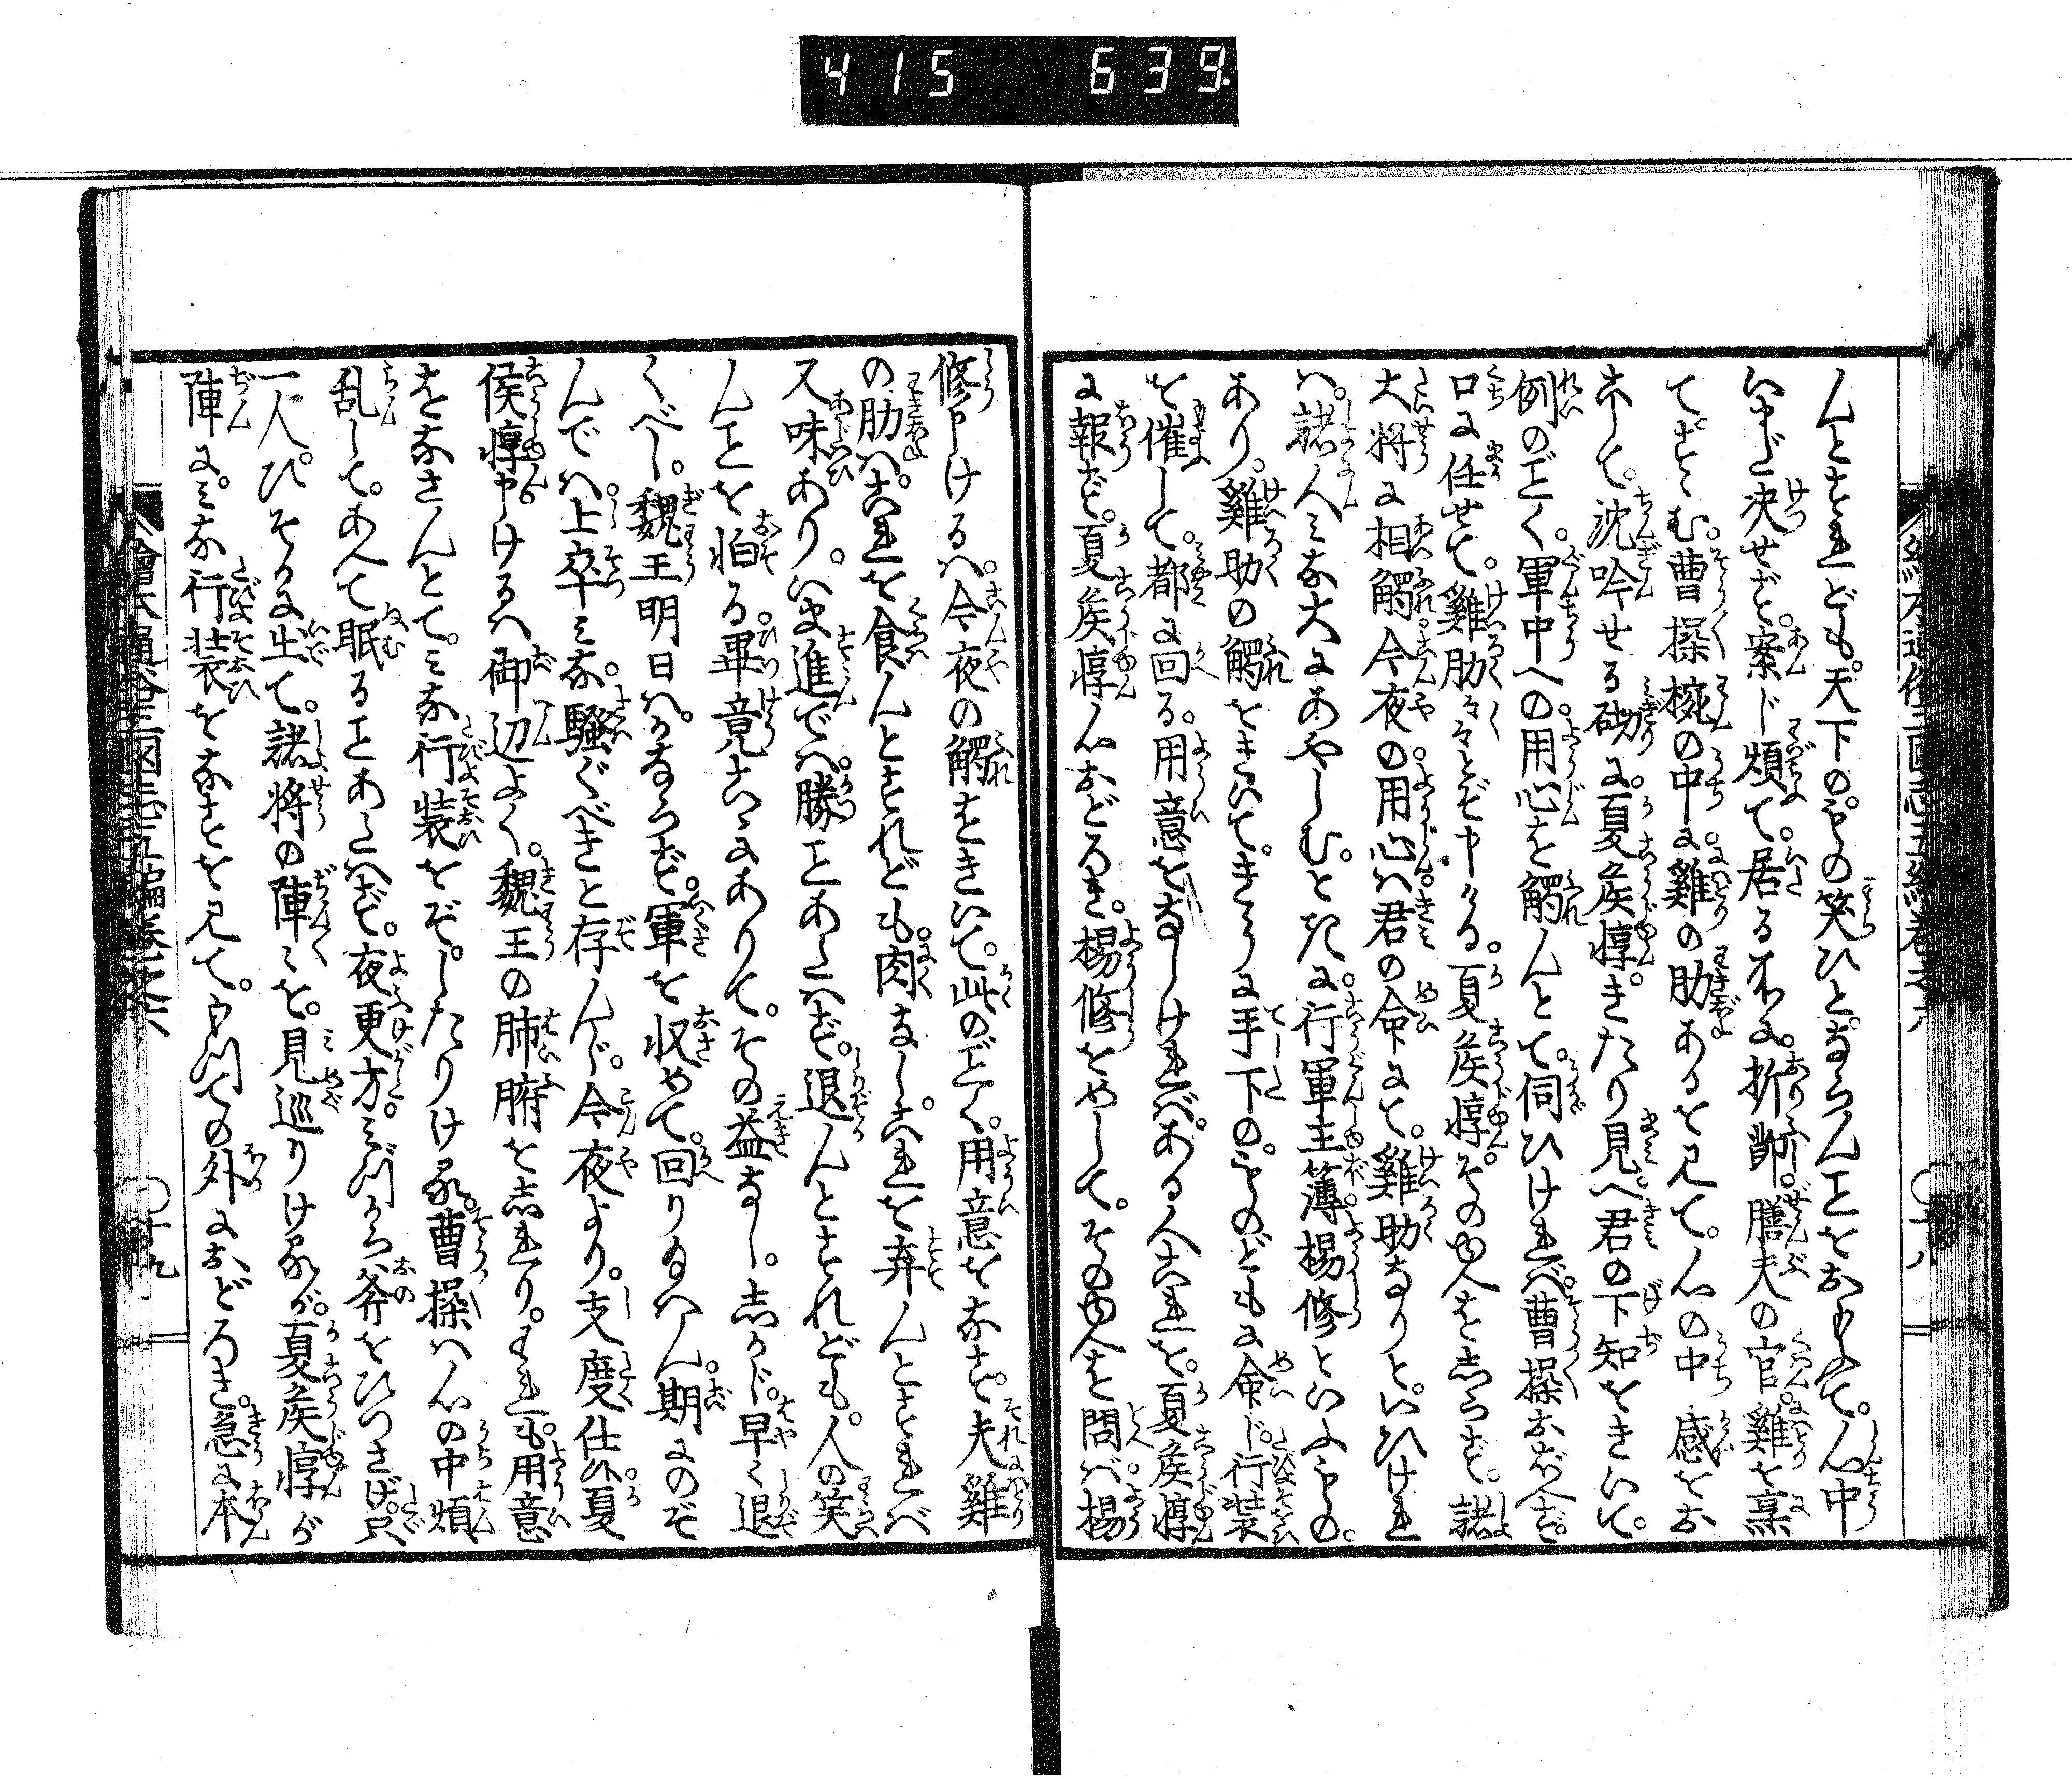 415 639
繪本通俗三國志五編卷之六
〇十八
んとすれども。天下のものゝ笑ひとならんことをおもふて。心中
いまだ决せず。案じ煩て。居る所に。折節。膳夫の官。雞を烹
てすゝむ。曹操椀の中に雞の肋あるを見て。心の中感をお
こして。沈吟せる砌に。夏侯惇。きたり見へ君の下知をきいて。
例のごとく。軍中への用心を觸んとて。伺ひければ。曹操おぼへず。
口に任せて。雞肋々々とぞ申ける。夏侯惇。その由を志らず。諸
大将に相觸今夜の用心は君の命にて。雞助なりといひけれ
は。諸人みな大にあやしむ。ときに。行軍主簿楊修といふもの。
あり。雞助の觸をきいて。きうに手下の。ものどもに命じ。行装
を催して。都に回る。用意をなしければ。ある人これを。夏侯惇
に報ず。夏侯惇心おどろき。楊修をめして。その由を問ば。楊
修申けるは。今夜の觸をきいて。此のごとく。用意をなす。夫雞
の肋は。これを食んとすれども。肉なし。これを弃んとすれば
又味あり。いま進では。勝ことあたはず。退んとすれども。人の笑
んことを怕る。畢竟こゝにありて。その益なし。志かじ。早く退
くべし。魏王明日は。かならず。軍を収めて。回り給はん。期にのぞ
んでは上卒みな。騒ぐべきと存んじ。今夜より。支度仕ひ。夏
侯惇申けるは御辺よく。魏王の肺腑を志れり。われも。用意
をなさんとて。みな行装をぞ。したりける。曹操は心の中煩
乱して。あへて眠ることあたはず。夜更方。みづから斧をひつさげ。只
一人。ひそかに出て。諸将の陣々を。見巡りけるが。夏侯惇が
陣に。みな行装をなすを見て。もつての外におどろき。急に本
繪本通俗三國志五編卷之六
〇十九